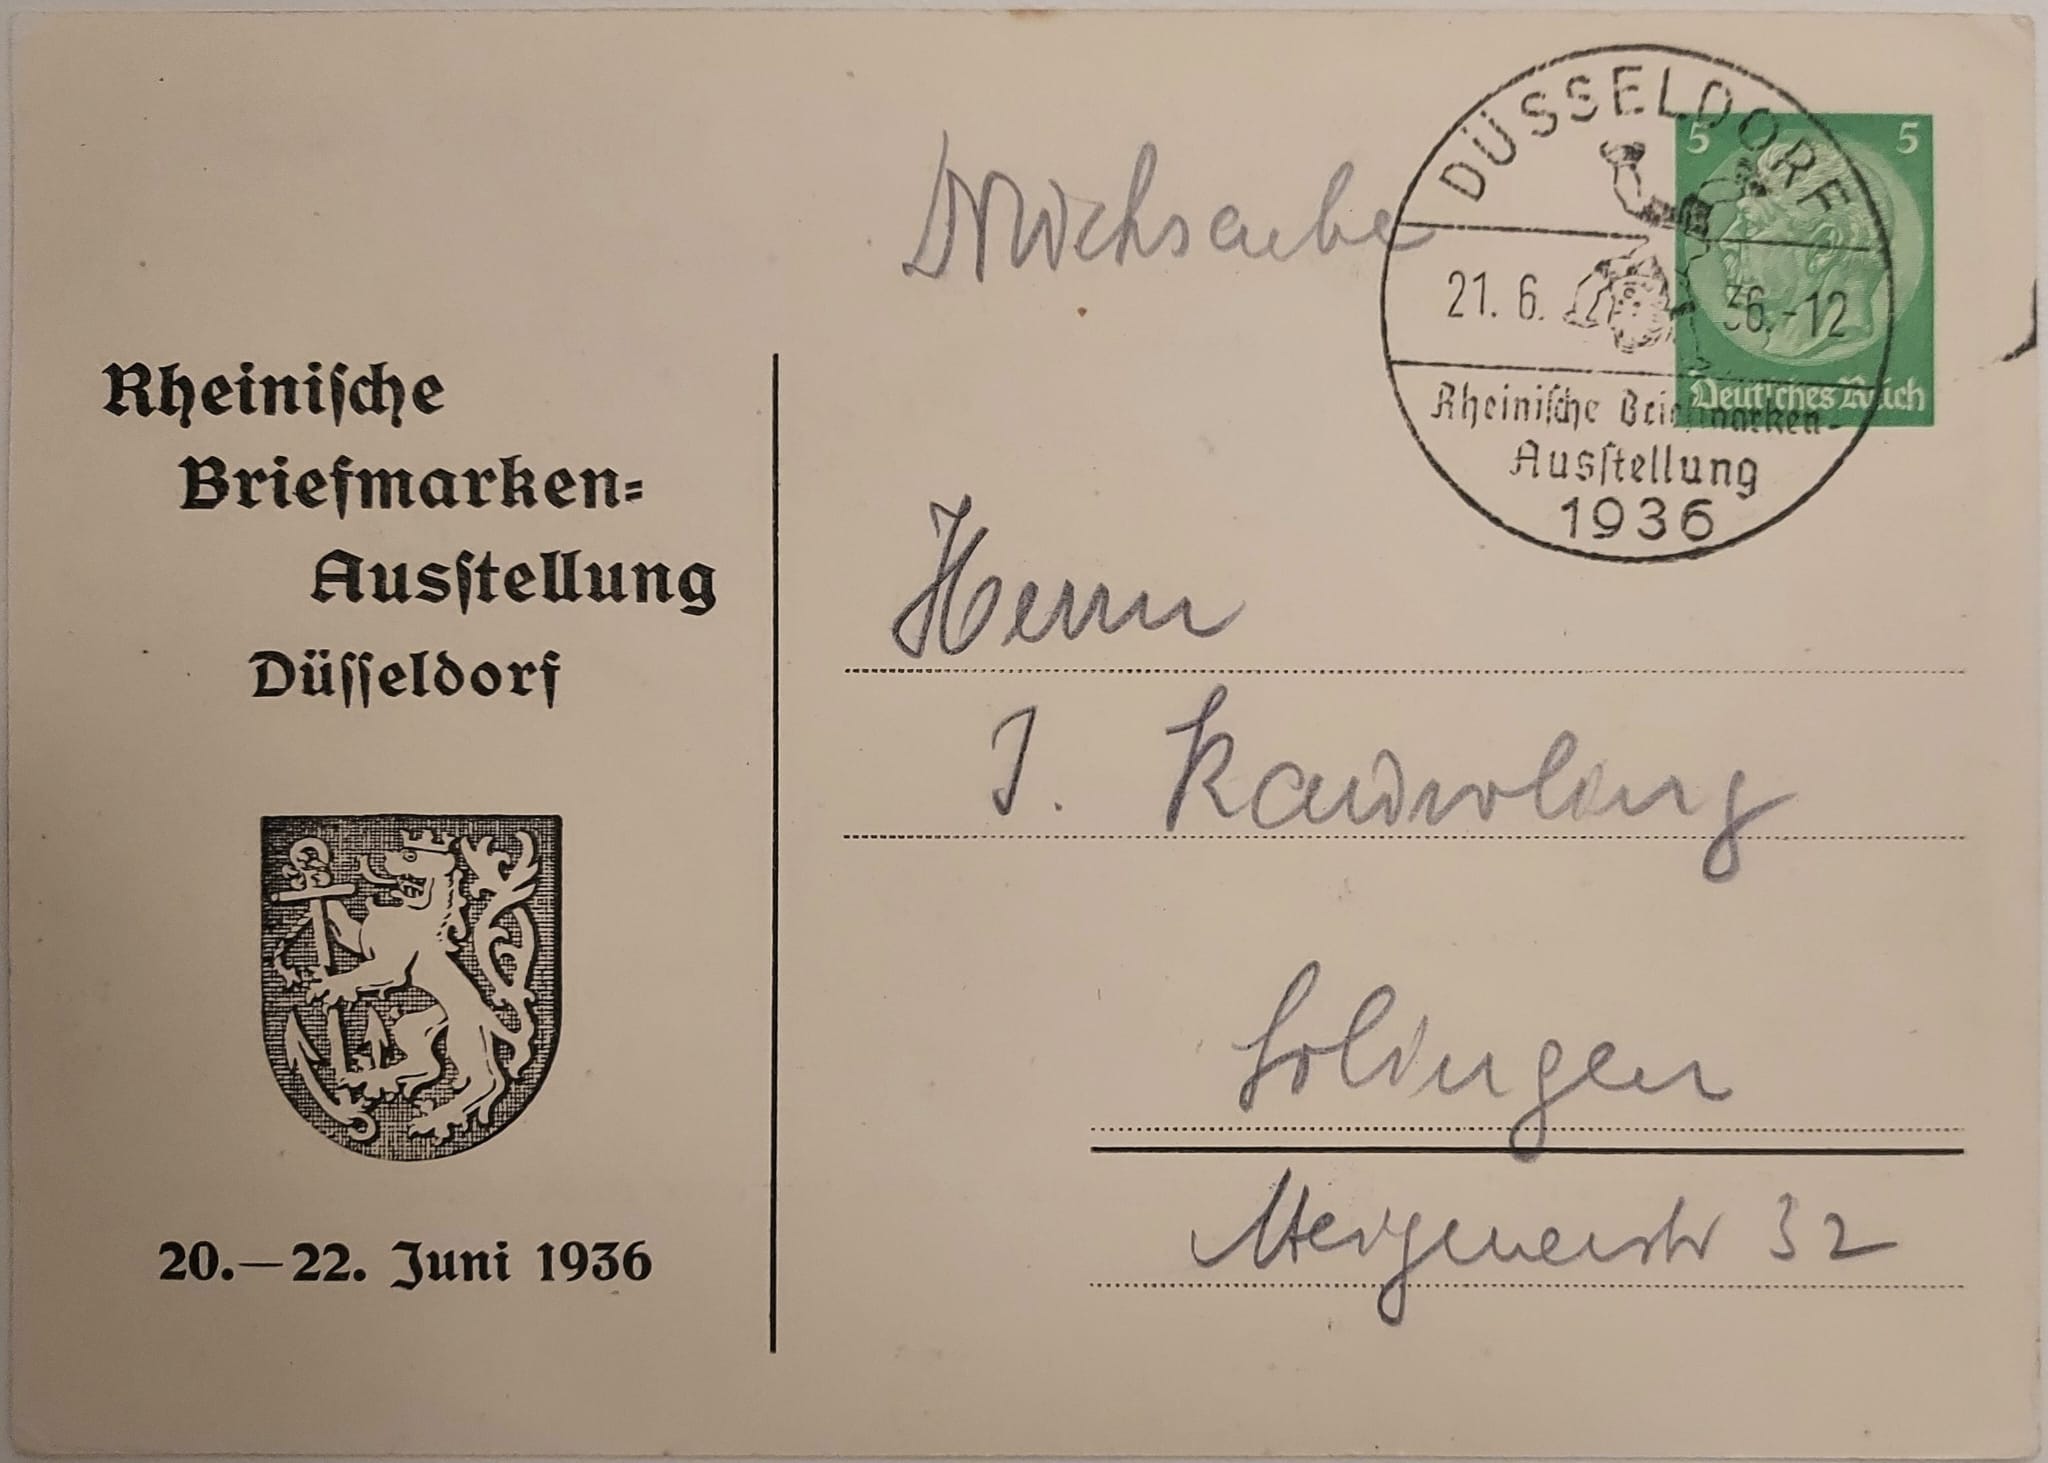 Rheinische
Briefmarken=
Ausstellung
Düsseldorf
20.—22. Juni 1936
Drucksache
DÜSSELDORF
21. 6. 36.-12
Rheinische Briefmarken-
Ausstellung
1936
5 5
Deutsches Reich
Herrn
J.
Solingen
32